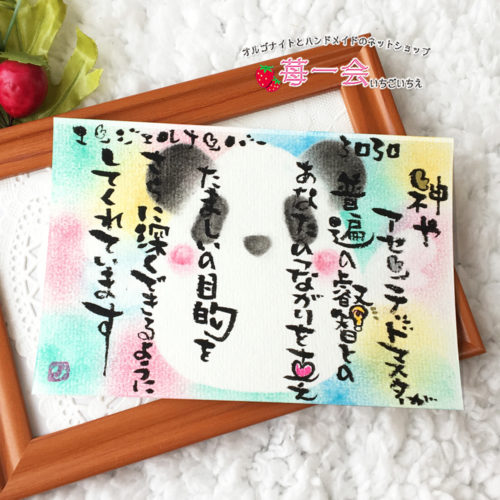 オルゴナイトとハンドメイドのネットショップ
苺一会
いちごいちえ
エンジェルナンバー
3030
神や
アセンデッドマスターが
普遍の叡智との
あなたのつながりを支え
たましいの目的を
さらに深くできるように
してくれています